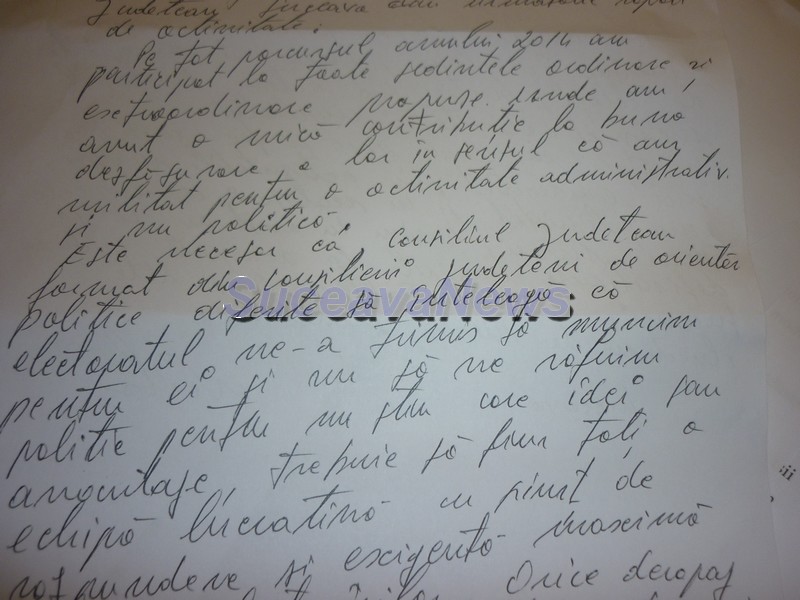 Județean Suceava
de activitate:
Pe tot parcursul anului 2014 am
participat la toate ședințele ordinare și
extraordinare propuse unde am
avut o mică contribuție la buna
desfășurare a lor în sensul că am
militat pentru o activitate administrativ.
și nu politică
Este necesar ca consiliul județean
format din consilieri județeni de orientări
politice diferite să înțeleagă că
SuceavaNews
electoratul ne-a trimis să muncim
pentru ei și nu să ne răfuim
politic pentru nu știu care idei sau
avantaje, trebuie să fim toți o
echipă lucrativă cu simț de
răspundere și exigență maximă
Orice derapaj